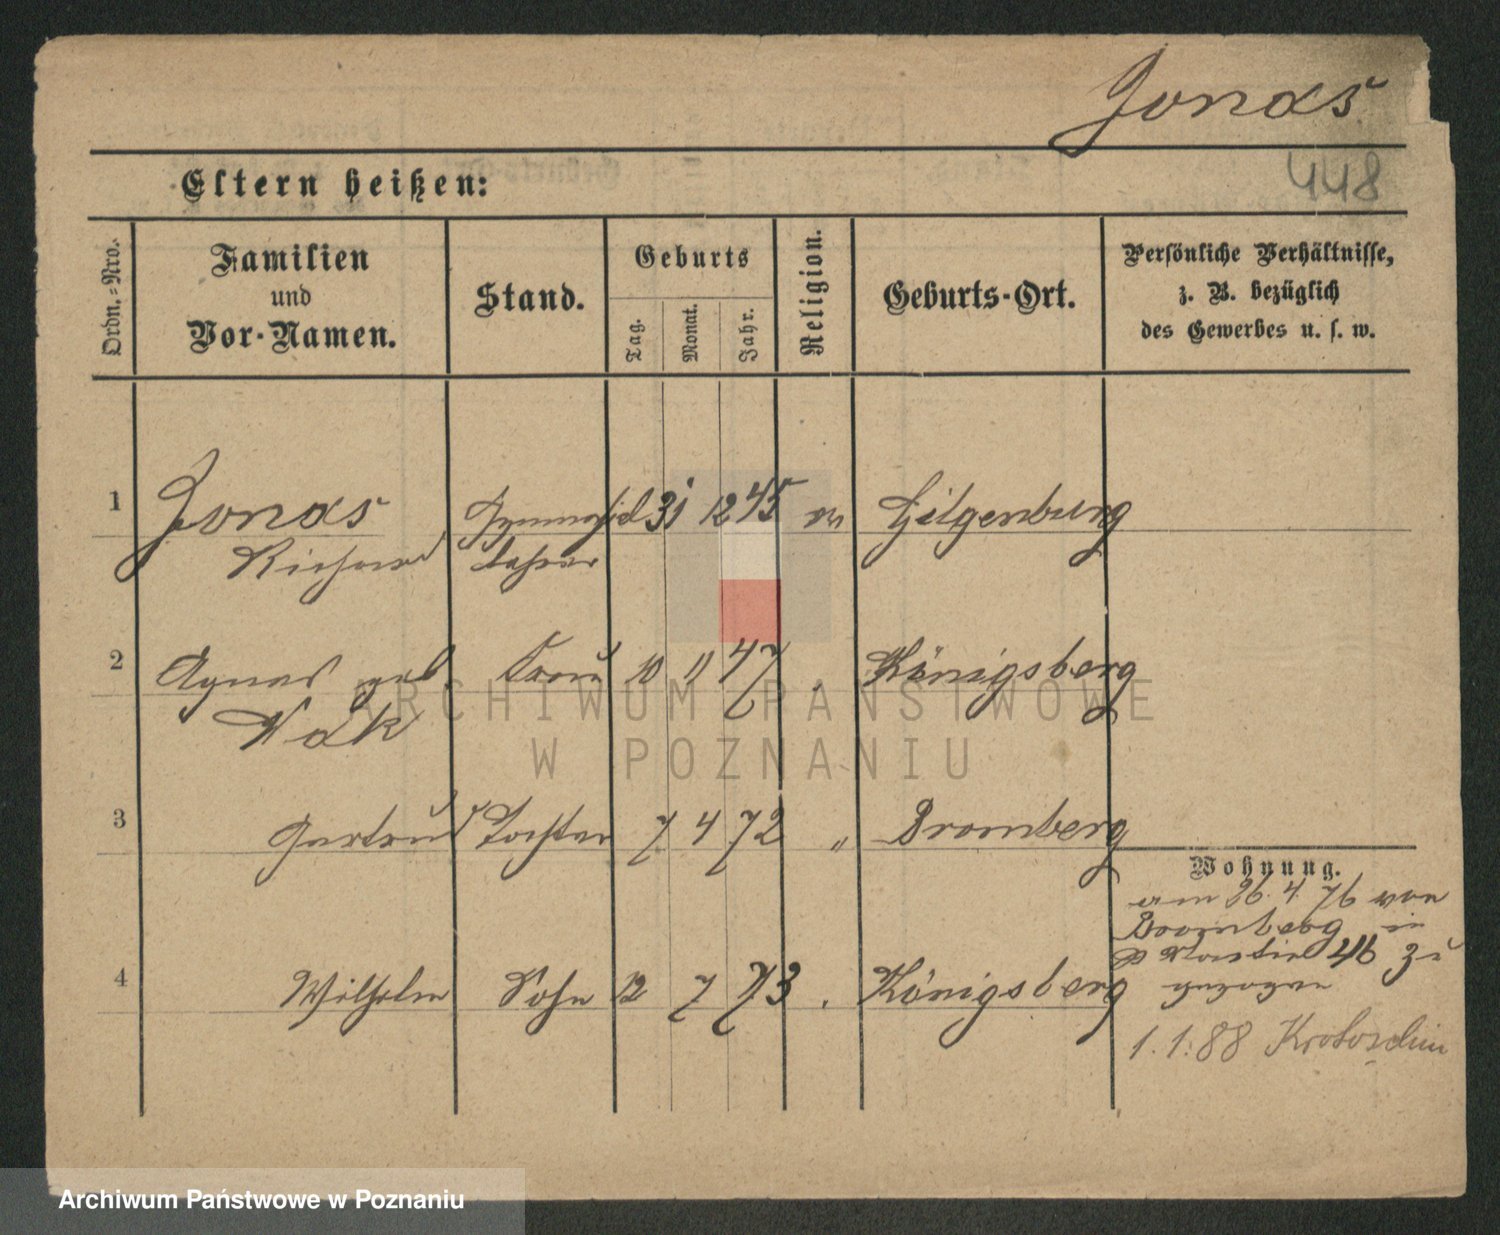 Jonas
448
Eltern heißen:
Ordn.-Nro.
Familien
und
Vor-Namen.
Stand.
Geburts
Tag.
Monat.
Jahr.
Religion.
Geburts-Ort.
Persönliche Verhältnisse,
z. B. bezüglich
des Gewerbes u. s. w.
1 Jonas 31 12 45 ev Gilgenburg
Richard Lehrer
2 Agnes geb Frau 10 11 47 Königsberg
Wohnung.
3 Gertrud Tochter 7 4 72 " Bromberg
am 26. 4. 76 von
Bromberg in
zu
gezogen
4 Wilhelm Sohn 12 7 73 Königsberg
1. 1. 88 Krotoschin
ARCHIWUM PAŃSTWOWE
W POZNANIU
Archiwum Państwowe w Poznaniu